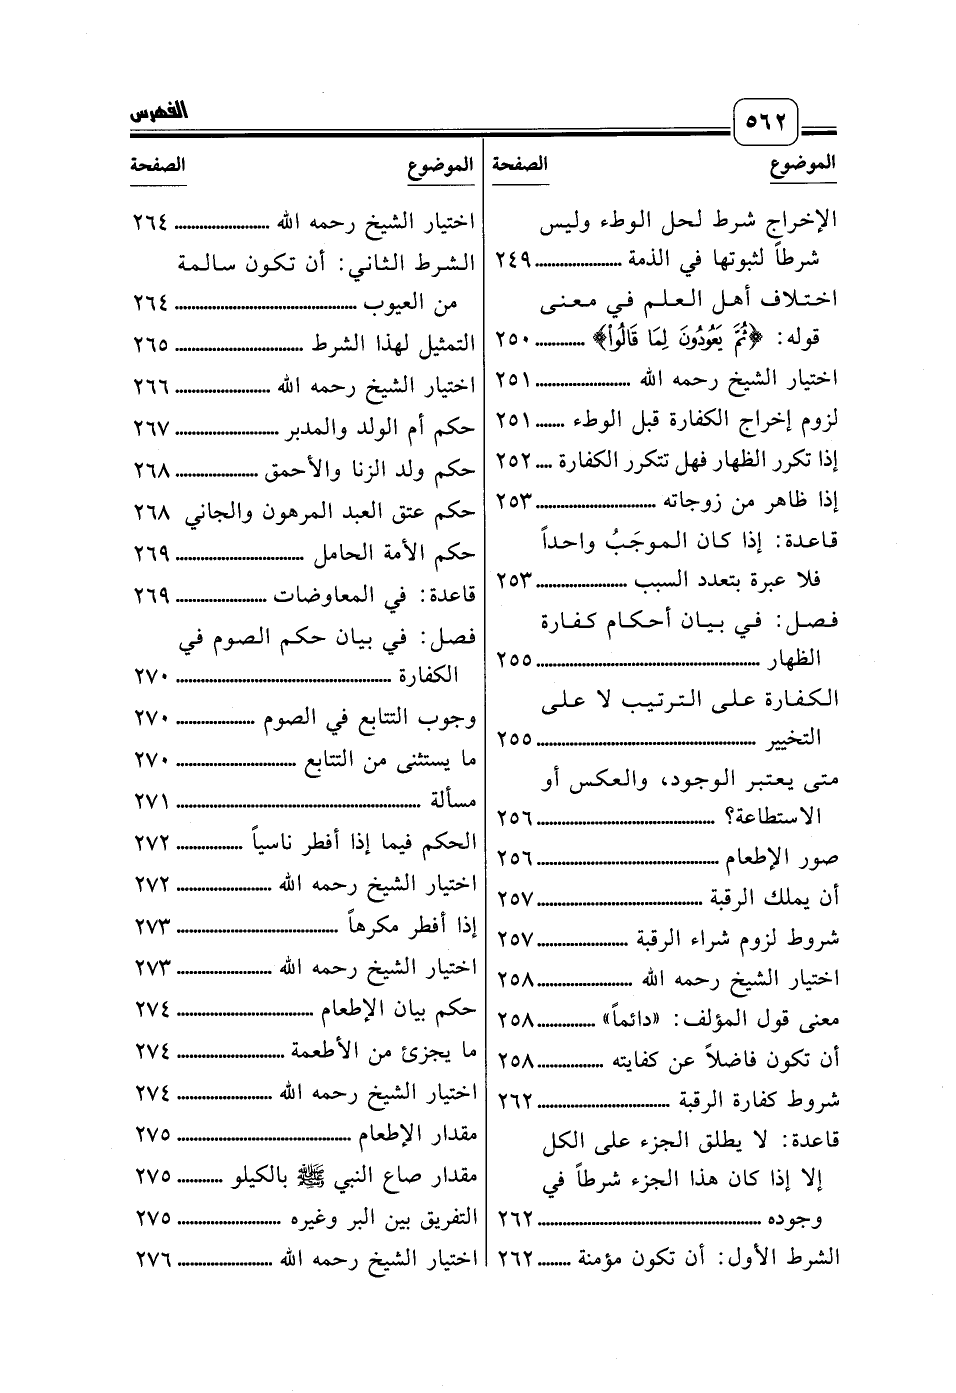 الفهرس
٥٦٢
الموضوع الصفحة
الإخراج شرط لحل الوطء وليس
شرطاً لثبوتها في الذمة ........ ٢٤٩
اختلاف أهل العلم في معنى
قوله: ﴿ثُمَّ يَعُودُونَ لِمَا قَالُوا﴾ ........ ٢٥٠
اختيار الشيخ رحمه الله ........ ٢٥١
لزوم إخراج الكفارة قبل الوطء ........ ٢٥١
إذا تكرر الظهار فهل تتكرر الكفارة .... ٢٥٢
إذا ظاهر من زوجاته ........ ٢٥٣
قاعدة: إذا كان الموجَبُ واحداً
فلا عبرة بتعدد السبب ........ ٢٥٣
فصل: في بيان أحكام كفارة
الظهار ........ ٢٥٥
الكفارة على الترتيب لا على
التخيير ........ ٢٥٥
متى يعتبر الوجود، والعكس أو
الاستطاعة؟ ........ ٢٥٦
صور الإطعام ........ ٢٥٦
أن يملك الرقبة ........ ٢٥٧
شروط لزوم شراء الرقبة ........ ٢٥٧
اختيار الشيخ رحمه الله ........ ٢٥٨
معنى قول المؤلف: «دائماً» ........ ٢٥٨
أن تكون فاضلاً عن كفايته ........ ٢٥٨
شروط كفارة الرقبة ........ ٢٦٢
قاعدة: لا يطلق الجزء على الكل
إلا إذا كان هذا الجزء شرطاً في
وجوده ........ ٢٦٢
الشرط الأول: أن تكون مؤمنة ........ ٢٦٢
الموضوع الصفحة
اختيار الشيخ رحمه الله ........ ٢٦٤
الشرط الثاني: أن تكون سالمة
من العيوب ........ ٢٦٤
التمثيل لهذا الشرط ........ ٢٦٥
اختيار الشيخ رحمه الله ........ ٢٦٦
حكم أم الولد والمدبر ........ ٢٦٧
حكم ولد الزنا والأحمق ........ ٢٦٨
حكم عتق العبد المرهون والجاني ٢٦٨
حكم الأمة الحامل ........ ٢٦٩
قاعدة: في المعاوضات ........ ٢٦٩
فصل: في بيان حكم الصوم في
الكفارة ........ ٢٧٠
وجوب التتابع في الصوم ........ ٢٧٠
ما يستثنى من التتابع ........ ٢٧٠
مسألة ........ ٢٧١
الحكم فيما إذا أفطر ناسياً ........ ٢٧٢
اختيار الشيخ رحمه الله ........ ٢٧٢
إذا أفطر مكرهاً ........ ٢٧٣
اختيار الشيخ رحمه الله ........ ٢٧٣
حكم بيان الإطعام ........ ٢٧٤
ما يجزئ من الأطعمة ........ ٢٧٤
اختيار الشيخ رحمه الله ........ ٢٧٤
مقدار الإطعام ........ ٢٧٥
مقدار صاع النبي ﷺ بالكيلو ........ ٢٧٥
التفريق بين البر وغيره ........ ٢٧٥
اختيار الشيخ رحمه الله ........ ٢٧٦